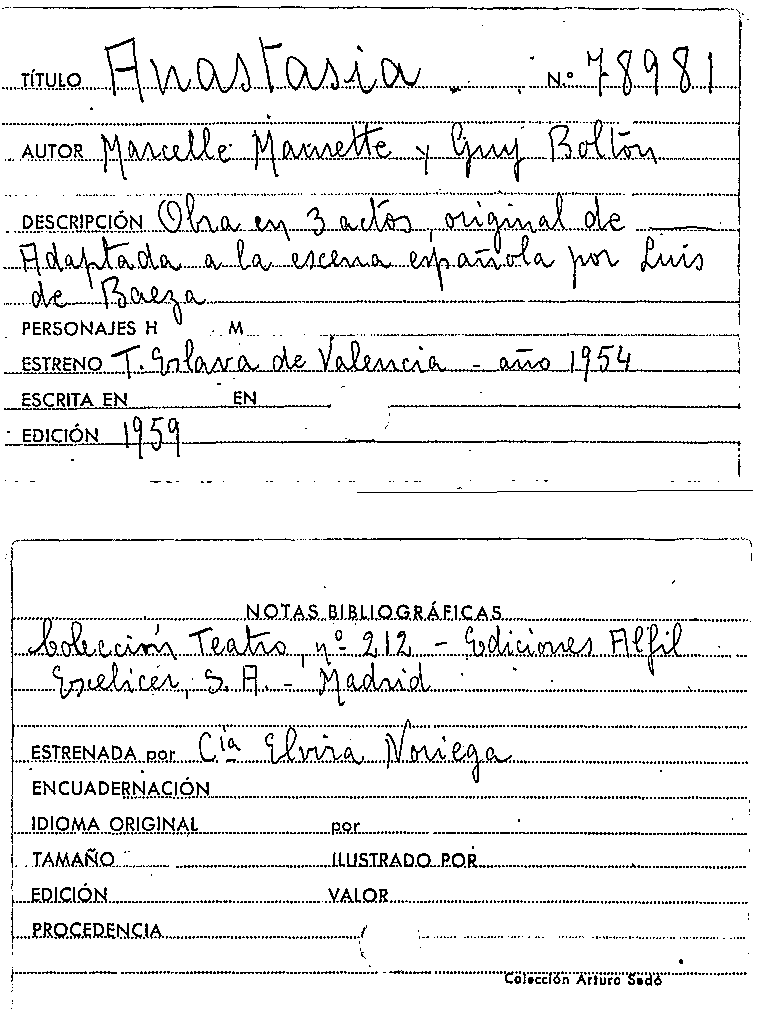 TÍTULO Anastasia. N.º 78981
AUTOR Marcelle Maurette y Guy Bolton
DESCRIPCIÓN Obra en 3 actos, original de
Adaptada a la escena española por Luis
de Baeza
PERSONAJES H M
ESTRENO T. Eslava de Valencia - año 1954
ESCRITA EN EN
EDICIÓN 1959
NOTAS BIBLIOGRÁFICAS
Colección Teatro, nº 212 - Ediciones Alfil
Escelicer, S. A. - Madrid
ESTRENADA por Cía Elvira Noriega
ENCUADERNACIÓN
IDIOMA ORIGINAL por
TAMAÑO ILUSTRADO POR
EDICIÓN VALOR
PROCEDENCIA
Colección Arturo Sedó